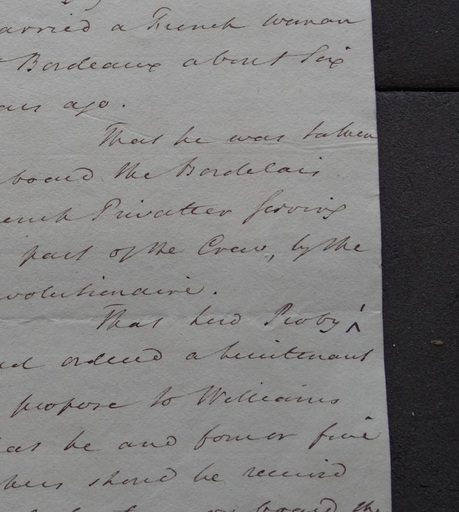 arried a French woman
Bordeaux about Six
ars ago.
That he was taken
board the Bordelais
ench Privatier serving
part of the Crew, by the
volutionaire.
That Lord Proby
ed ordered a Lieutenant
propose to Williams
hat he and former five
hers should be received
board the